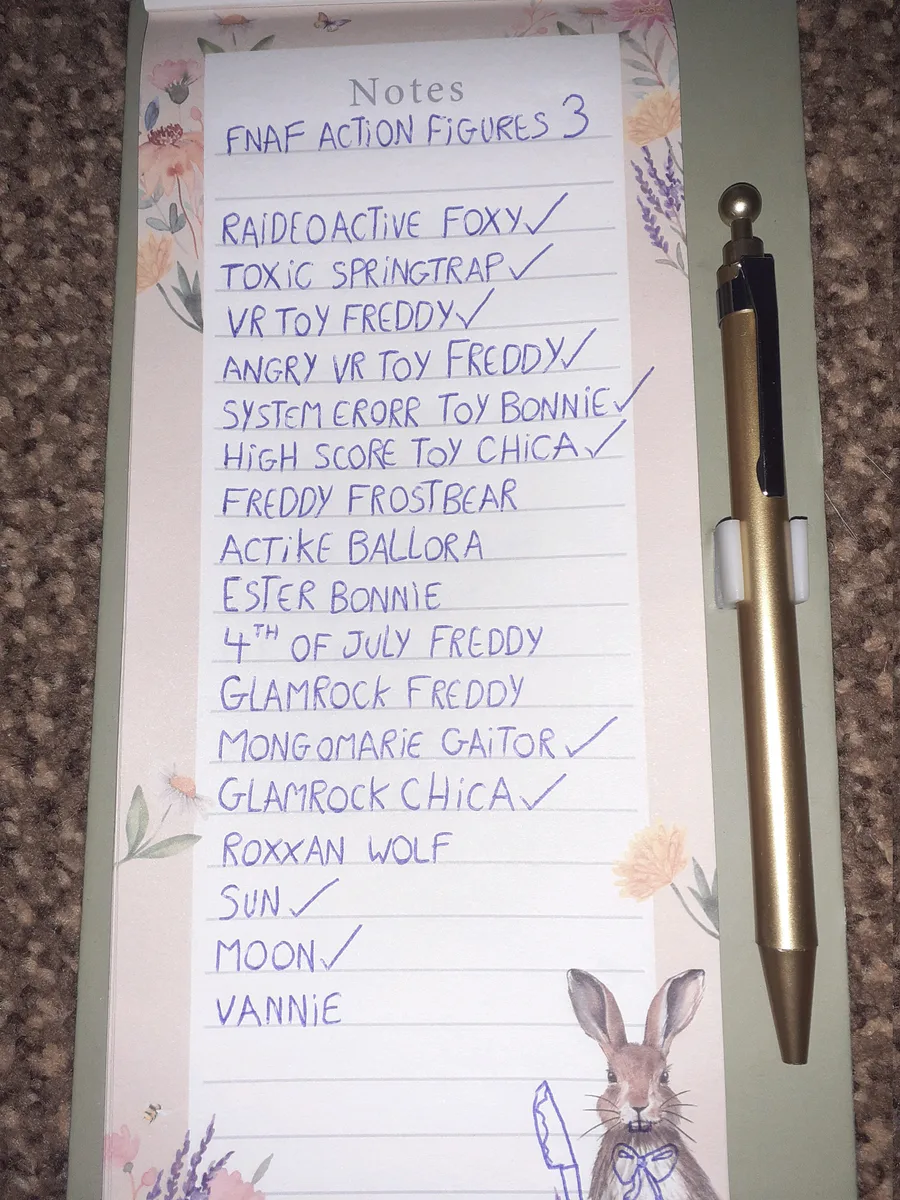 Notes
FNAF ACTION FIGURES 3
RAIDEOACTIVE FOXY✓
TOXIC SPRINGTRAP✓
VR TOY FREDDY✓
ANGRY VR TOY FREDDY✓
SYSTEM ERORR TOY BONNIE✓
HIGH SCORE TOY CHICA✓
FREDDY FROSTBEAR
ACTIKE BALLORA
ESTER BONNIE
4TH OF JULY FREDDY
GLAMROCK FREDDY
MONGOMARIE GAITOR✓
GLAMROCK CHICA✓
ROXXAN WOLF
SUN✓
MOON✓
VANNIE